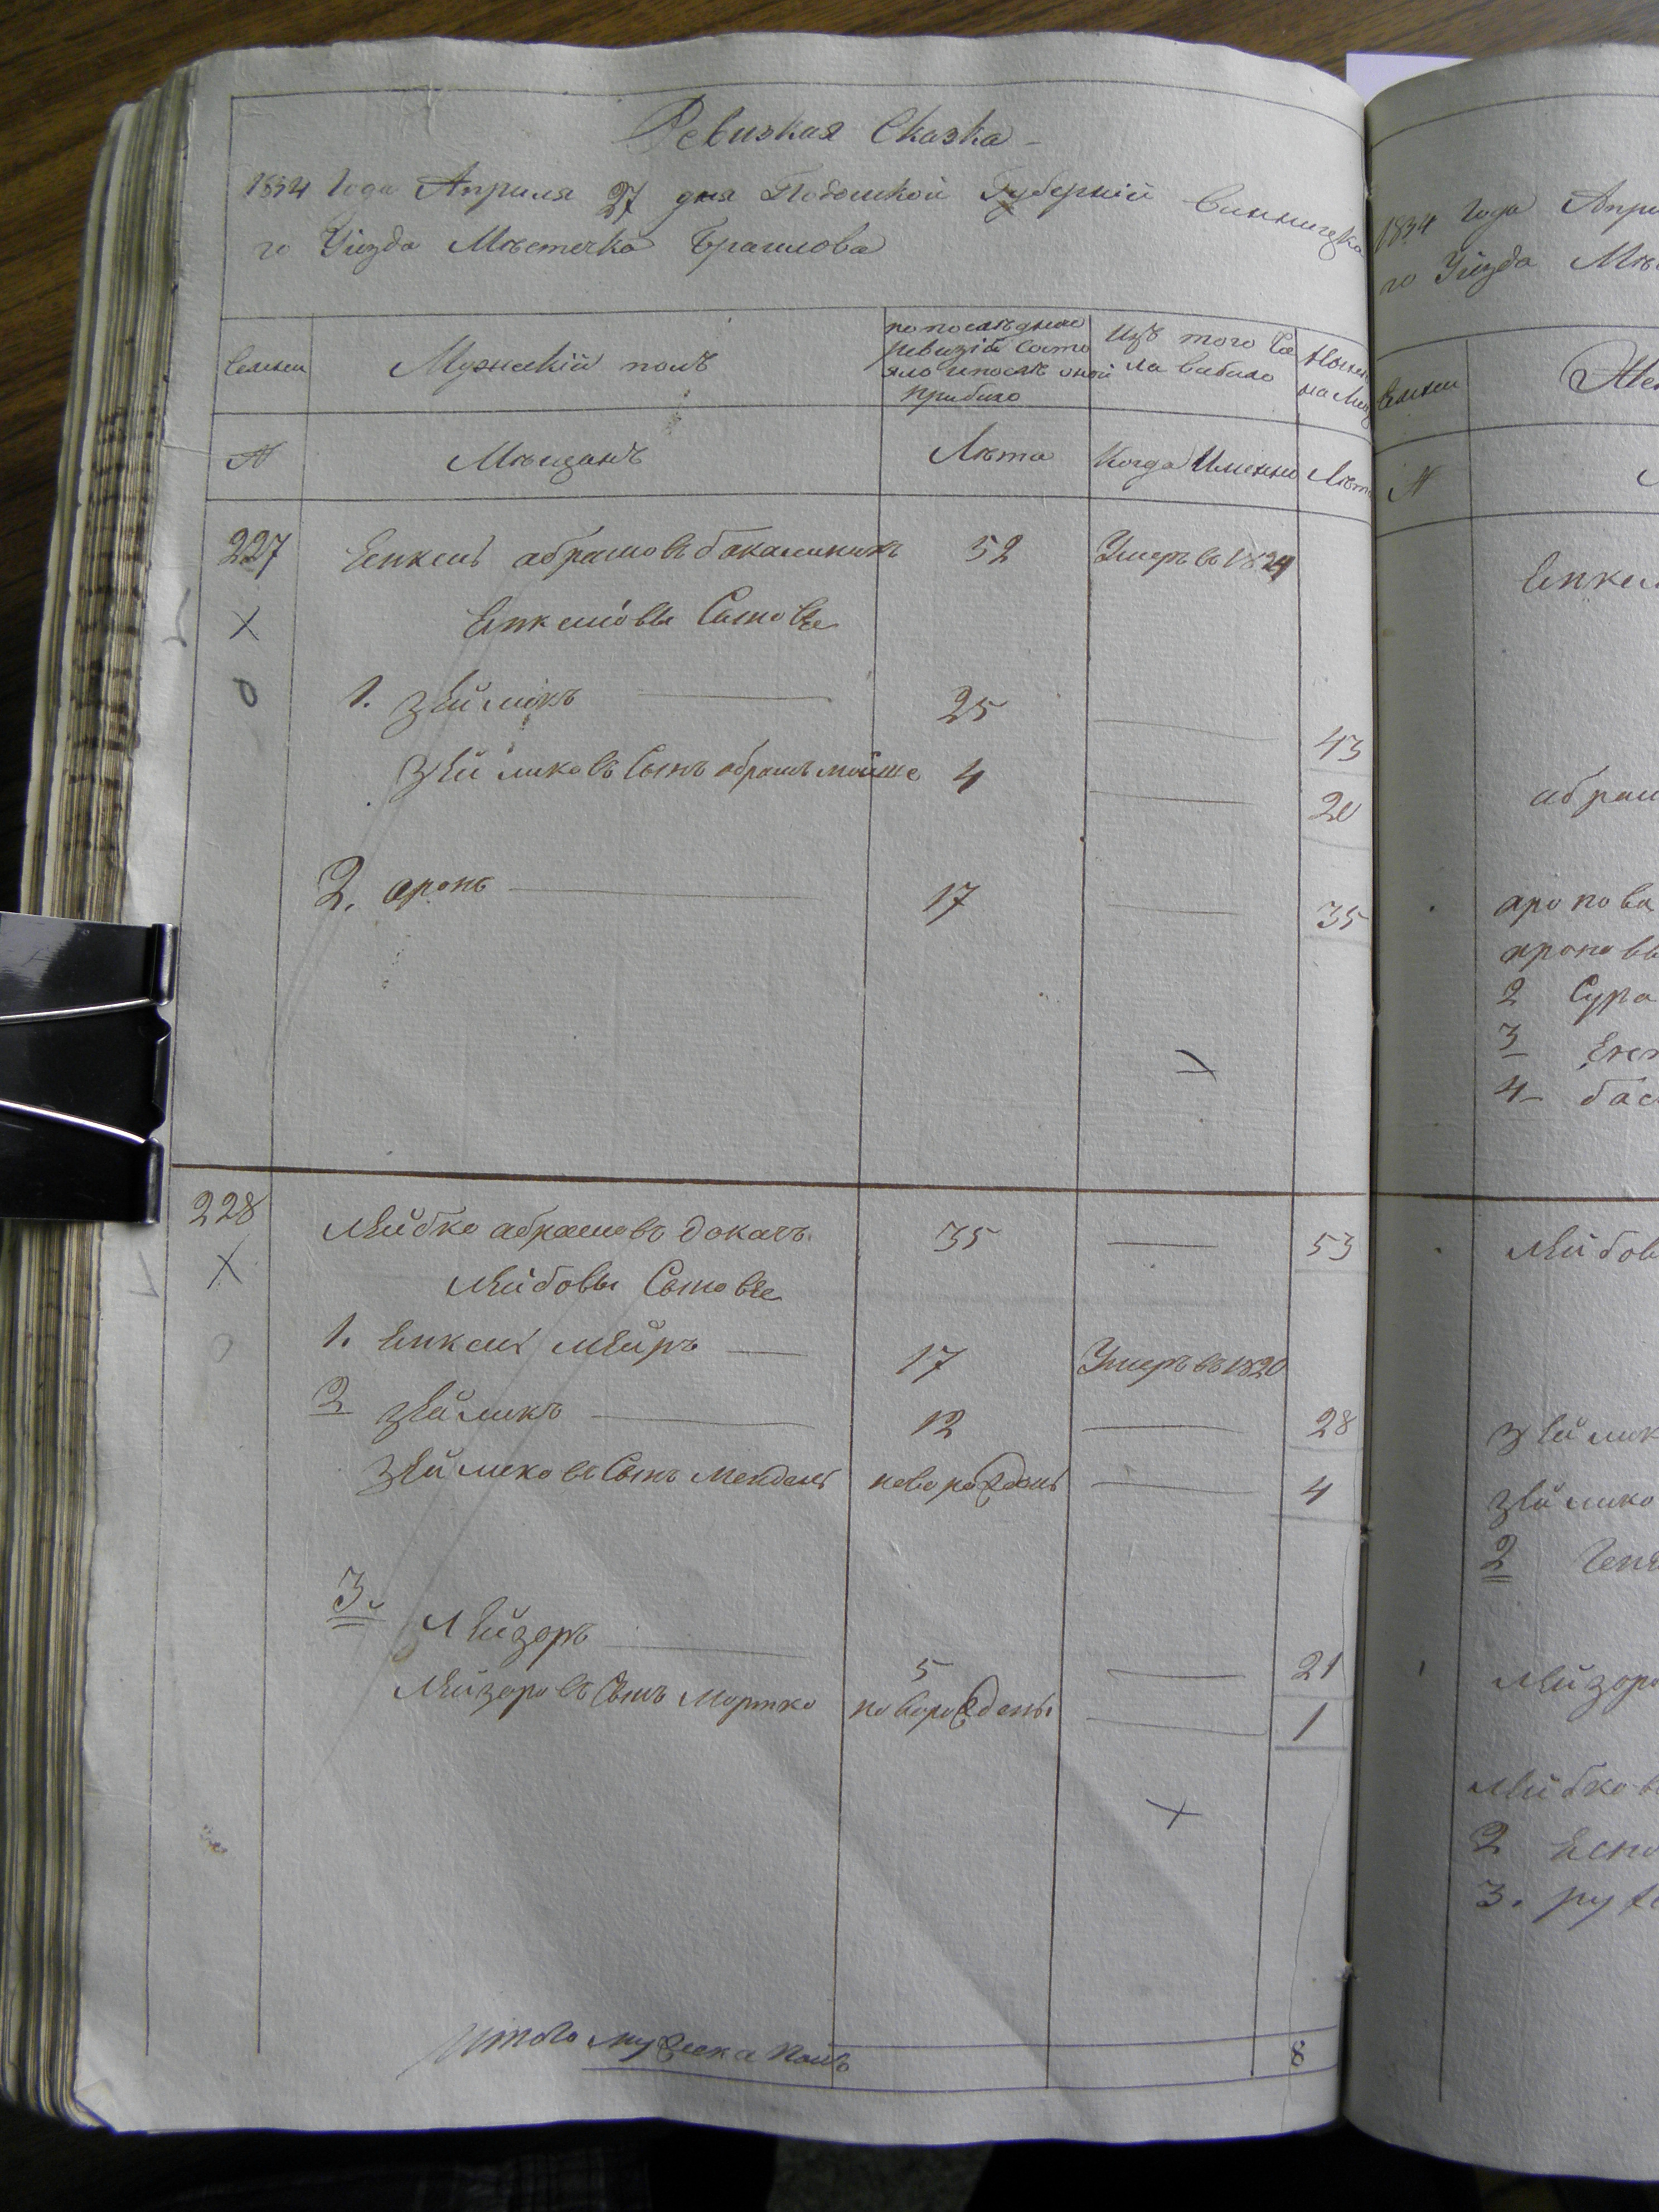 Ревизкая Сказка
1834 Года Апреля 27 дня Подолской Губерніи Винницка
го Уѣзда Мѣстечка Браилова
Семьи
Мужескій полъ
по последней
ревизіи состо
яло и после оной
прибыло
Изъ того Чи
сла выбыло
Ныне
на лицо
№
Мѣщанъ
Лѣта
Когда Именно
Лѣта
227
абрамовъ
52
Умеръ въ 1824
Сыновье
1. Зейликъ
25
43
Зейликовъ Сынъ абрамъ мойше
4
20
2. аронъ
17
35
228
Лейбко абрамовъ
35
53
Лейбовы Сыновье
1. мейръ
17
Умеръ въ 1820
2 Зейликъ
12
28
Зейликовъ Сынъ Мендель
новорожденъ
4
3. Лейзоръ
5
21
Лейзоровъ Сынъ Мортко
новорожденъ
1
Итого мужеска полъ
8
1834 Года Апре
го Уѣзда Мѣс
Семьи
№
абрам
аронова
ароновы
2 Сура
3
4
Лейбов
Зейлик
Зейлико
2
Лейзоро
Лейбков
2
3.